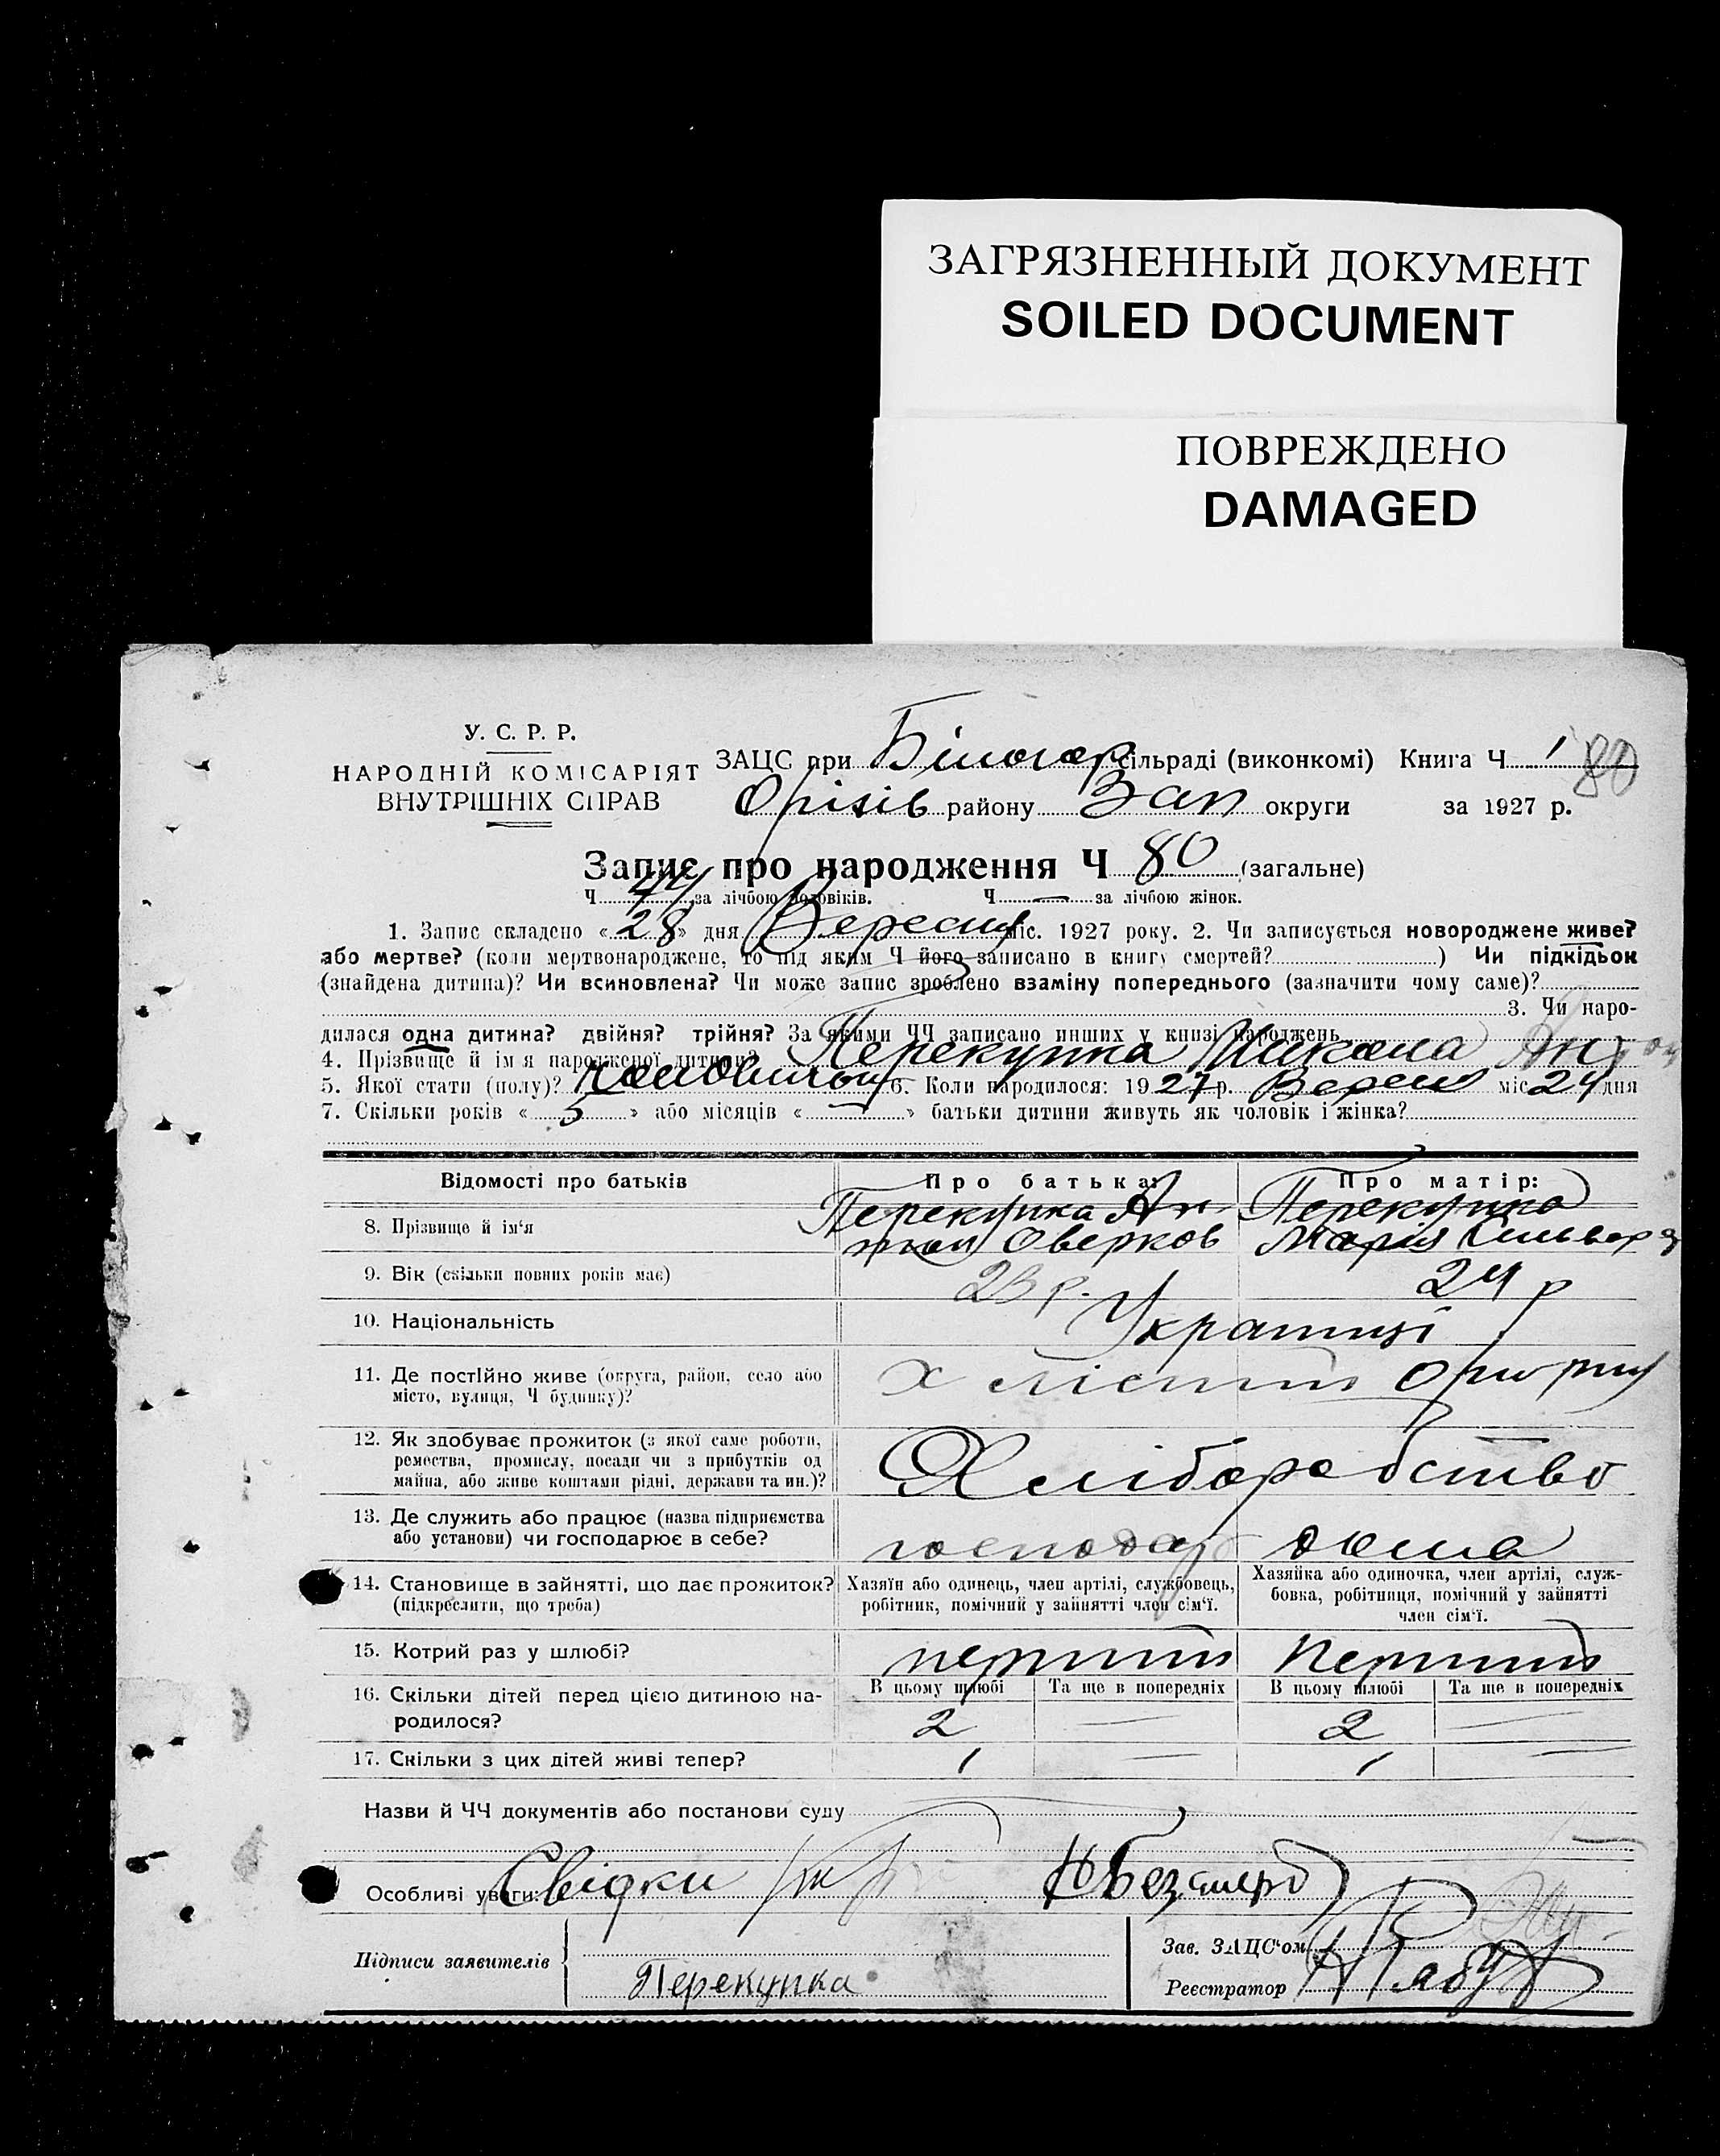 ЗАГРЯЗНЕННЫЙ ДОКУМЕНТ
SOILED DOCUMENT
ПОВРЕЖДЕНО
DAMAGED
У. С. Р. Р.
НАРОДНІЙ КОМІСАРІЯТ
ВНУТРІШНІХ СПРАВ
ЗАЦС при Білогор сільраді (виконкомі) Книга Ч 1 80
Оріхів району Зап округи за 1927 р.
Запис про народження Ч 80 (загальне)
Ч 44 за лічбою чоловіків. Ч — за лічбою жінок.
1. Запис складено «28» дня Вересня міс. 1927 року. 2. Чи записується новороджене живе?
або мертве? (коли мертвонароджене, то під яким Ч його записано в книгу смертей? ) Чи підкідьок
(знайдена дитина)? Чи всиновлена? Чи може запис зроблено взаміну попереднього (зазначити чому саме)?
3. Чи наро-
дилася одна дитина? двійня? трійня? За якими ЧЧ записано инших у книзі народжень
4. Прізвище й ім'я народженої дитини? Перекупка Микола Антон
5. Якої стати (полу)? 6. Коли народилося: 1927 р. Верес міс 24 дня
7. Скільки років «5» або місяців «—» батьки дитини живуть як чоловік і жінка?
Відомості про батьків Про батька: Про матір:
8. Прізвище й ім'я Перекупка Ан Перекупка
тон Оверков Марія
9. Вік (скільки повних років має) 23 р. 24 р
10. Національність Українці
11. Де постІйно живе (округа, район, село або
місто, вулиця, Ч будинку)?
12. Як здобуває прожиток (з якої саме роботи,
ремества, промислу, посади чи з прибутків од
майна, або живе коштами рідні, держави та ин.)? Хліборобство
13. Де служить або працює (назва підприємства
або установи) чи господарює в себе? господар дома
14. Становище в зайнятті, що дає прожиток? Хазяїн або одинець, член артілі, службовець, Хазяйка або одиночка, член артілі, служ-
(підкреслити, що треба) робітник, помічний у зайнятті член сім'ї. бовка, робітниця, помічний у зайнятті
член сім'ї.
15. Котрий раз у шлюбі? перший Перший
16. Скільки дітей перед цією дитиною на- В цьому шлюбі Та ще в попередніх В цьому шлюбі Та ще в попередніх
родилося? 2 — 2 —
17. Скільки з цих дітей живі тепер? 1 — 1 —
Назви й ЧЧ документів або постанови суду
Особливі уваги: Свідки
Підписи заявителів Зав. ЗАЦС'ом
Перекупка Реєстратор